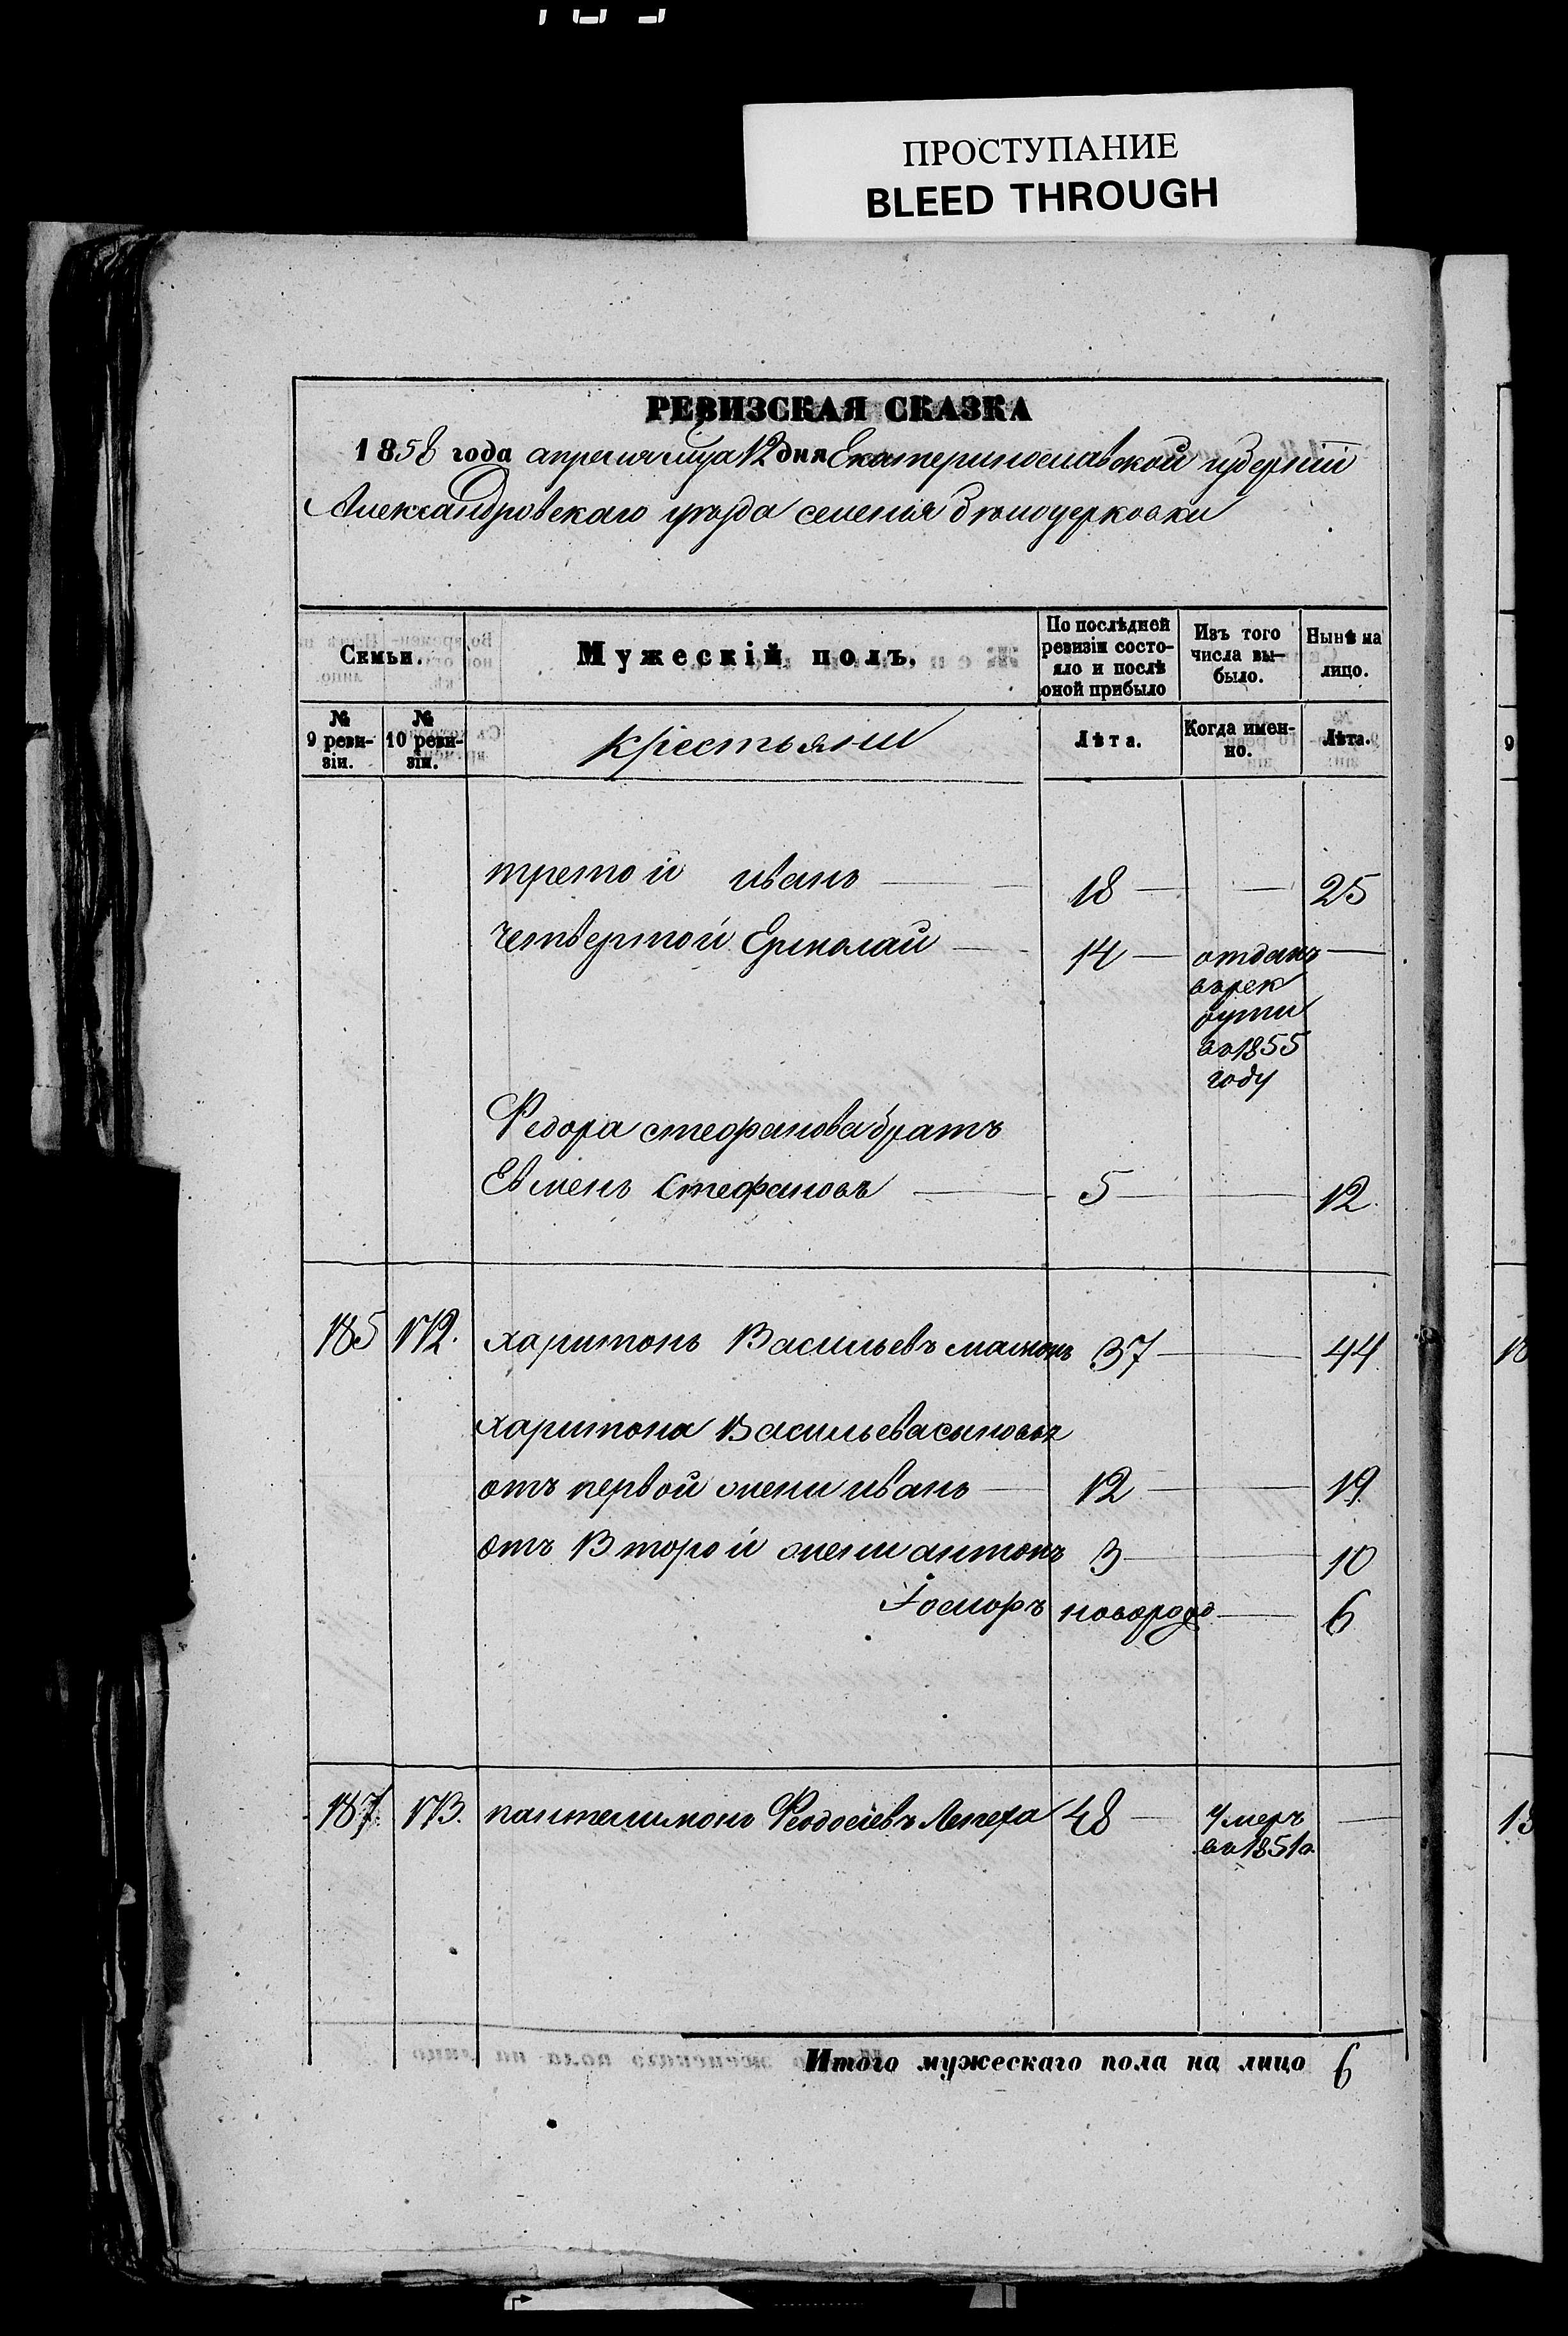 ПРОСТУПАНИЕ
BLEED THROUGH
РЕВИЗСКАЯ СКАЗКА
1858 года апреля мца 12 дня Екатеринославской губернiи
Александровскаго уѣзда селенiя бѣлоцерковки
Семьи. Мужескій полъ. По послѣдней ревизіи состояло и послѣ оной прибыло Изъ того числа выбыло. Нынѣ на лицо.
№ 9 ревизіи. № 10 ревизіи. крестьяни Лѣта. Когда именно. Лѣта.
третой иванъ 18 25
четвертой Ермолай 14 отданъ
врек
рути
въ 1855
году
Федора стефанова братъ
Евменъ Стефановъ 5 12
185 172. харитонъ Васильевъ 37 44
харитона Васильева сыновья
отъ первой жени иванъ 12 19
отъ Второй жени антонъ 3 10
Іосифъ новорожд 6
187 173. пантелимонъ Феодосіевъ Лепеха 48 Умеръ
въ 1851 г.
Итого мужескаго пола на лицо 6
9
18